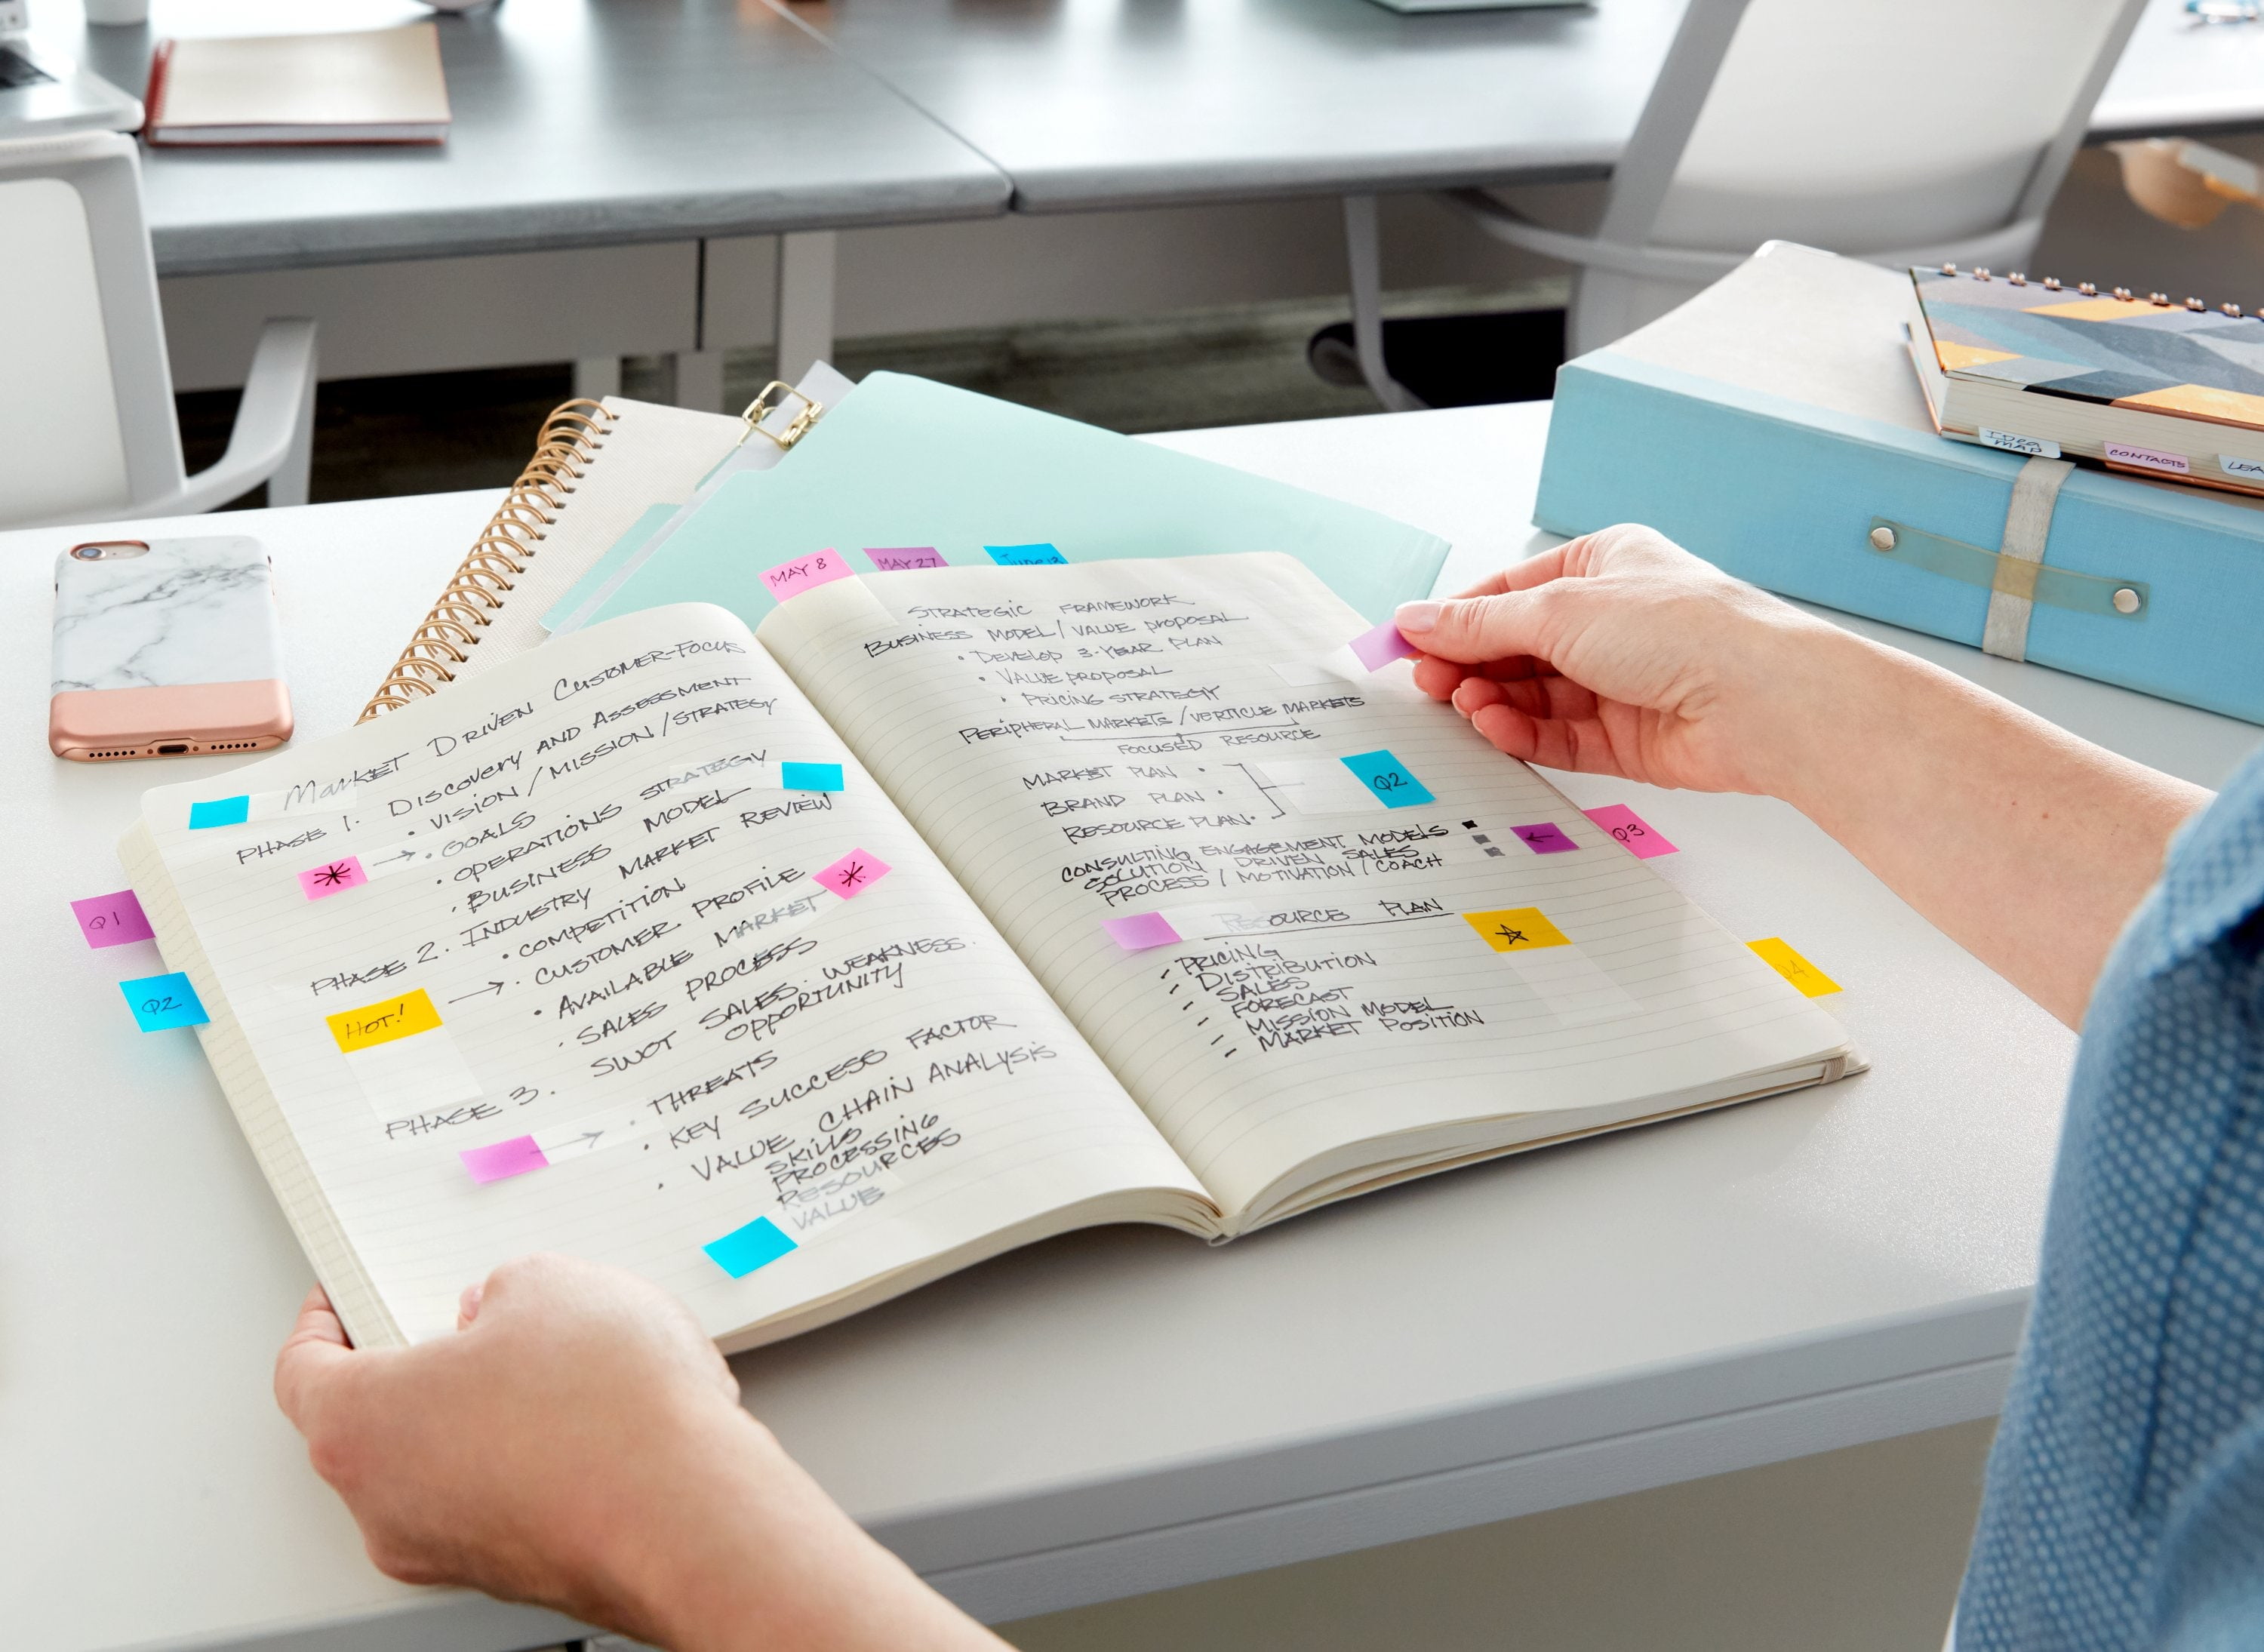 MAY 8
MAY 27
JUNE 12
Market Driven Customer-Focus
PHASE 1. Discovery and Assessment
• VISION / MISSION / STRATEGY
* → • GOALS
• OPERATIONS STRATEGY
• BUSINESS MODEL
PHASE 2. INDUSTRY MARKET REVIEW
• COMPETITION
HOT! → • CUSTOMER PROFILE *
• AVAILABLE MARKET
• SALES PROCESS
PHASE 3. SWOT SALES. WEAKNESS.
OPPORTUNITY
→ • THREATS
• KEY SUCCESS FACTOR
• VALUE CHAIN ANALYSIS
SKILLS
PROCESSING
RESOURCES
VALUE
Q1
Q2
STRATEGIC FRAMEWORK
BUSINESS MODEL / VALUE PROPOSAL
• DEVELOP 3-YEAR PLAN
• VALUE PROPOSAL
• PRICING STRATEGY
PERIPHERAL MARKETS / VERTICLE MARKETS
FOCUSED RESOURCE
MARKET PLAN •
BRAND PLAN •
RESOURCE PLAN •
Q2
CONSULTING ENGAGEMENT MODELS
SOLUTION DRIVEN SALES ←
PROCESS / MOTIVATION / COACH
RESOURCE PLAN
- PRICING
- DISTRIBUTION
- SALES
- FORECAST
- MISSION MODEL
- MARKET POSITION
Q3
Q4
IDEA
MAP
CONTACTS